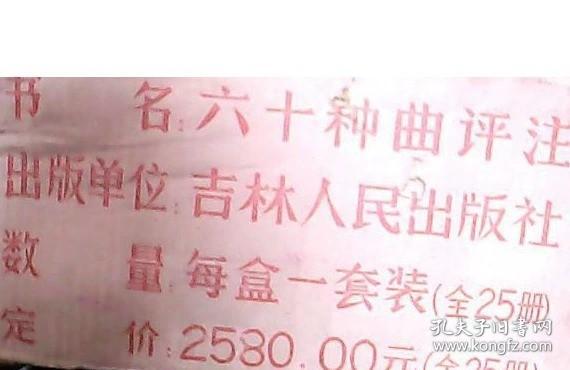 书 名:六十种曲评注
出版单位:吉林人民出版社
数 量:每盒一套装(全25册)
定 价:2580.00元(全25册)
孔夫子旧书网
www.kongfz.com